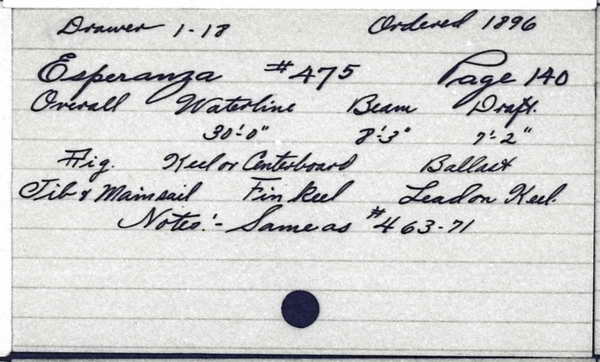 Drawer 1-18 Ordered 1896
Esperanza #475 Page 140
Overall Waterline Beam Draft.
30'-0" 8'-3" 7'-2"
Rig. Keel or Centerboard Ballast
Jib & Mainsail Fin Keel Lead on Keel.
Notes:- Same as #463-71